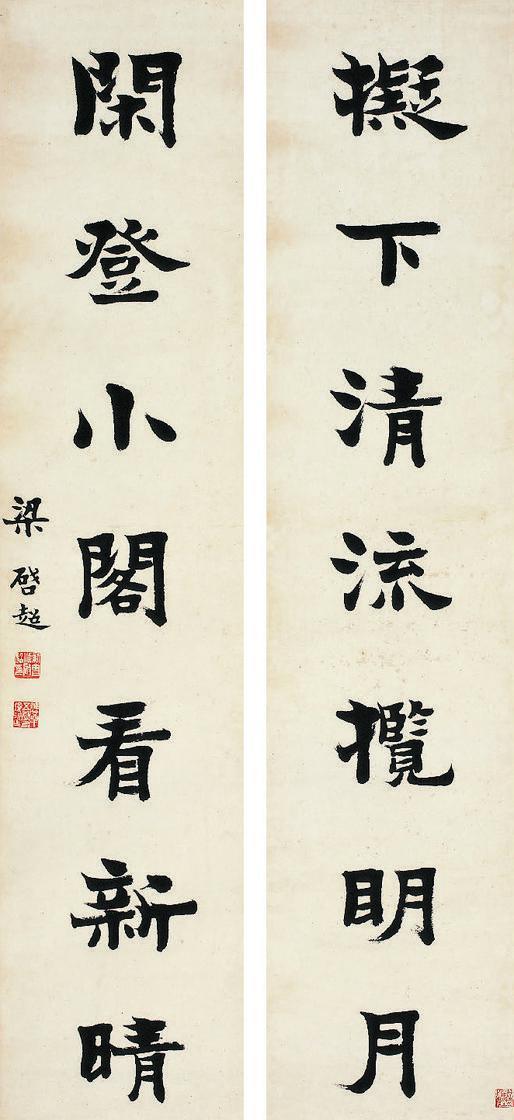 擬下清流攬明月
閑登小閣看新晴
梁啓超